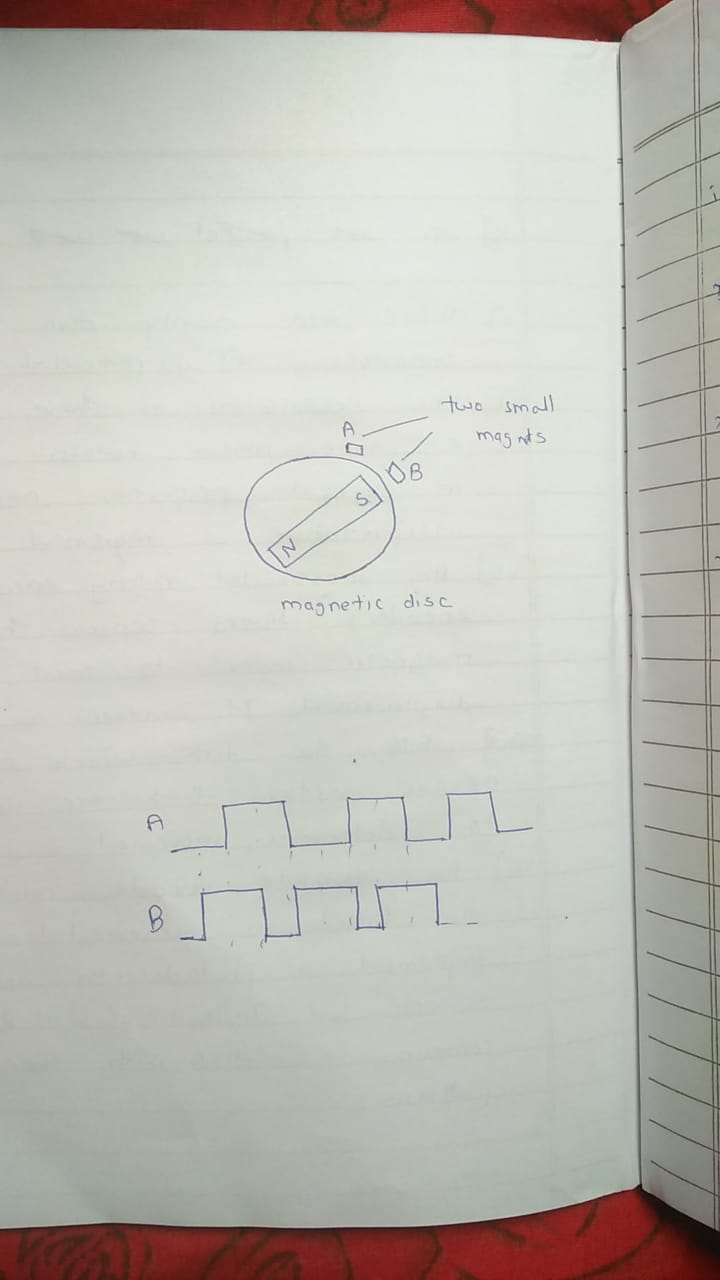 two small
A
magnts
B
S
N
magnetic disc
A
B